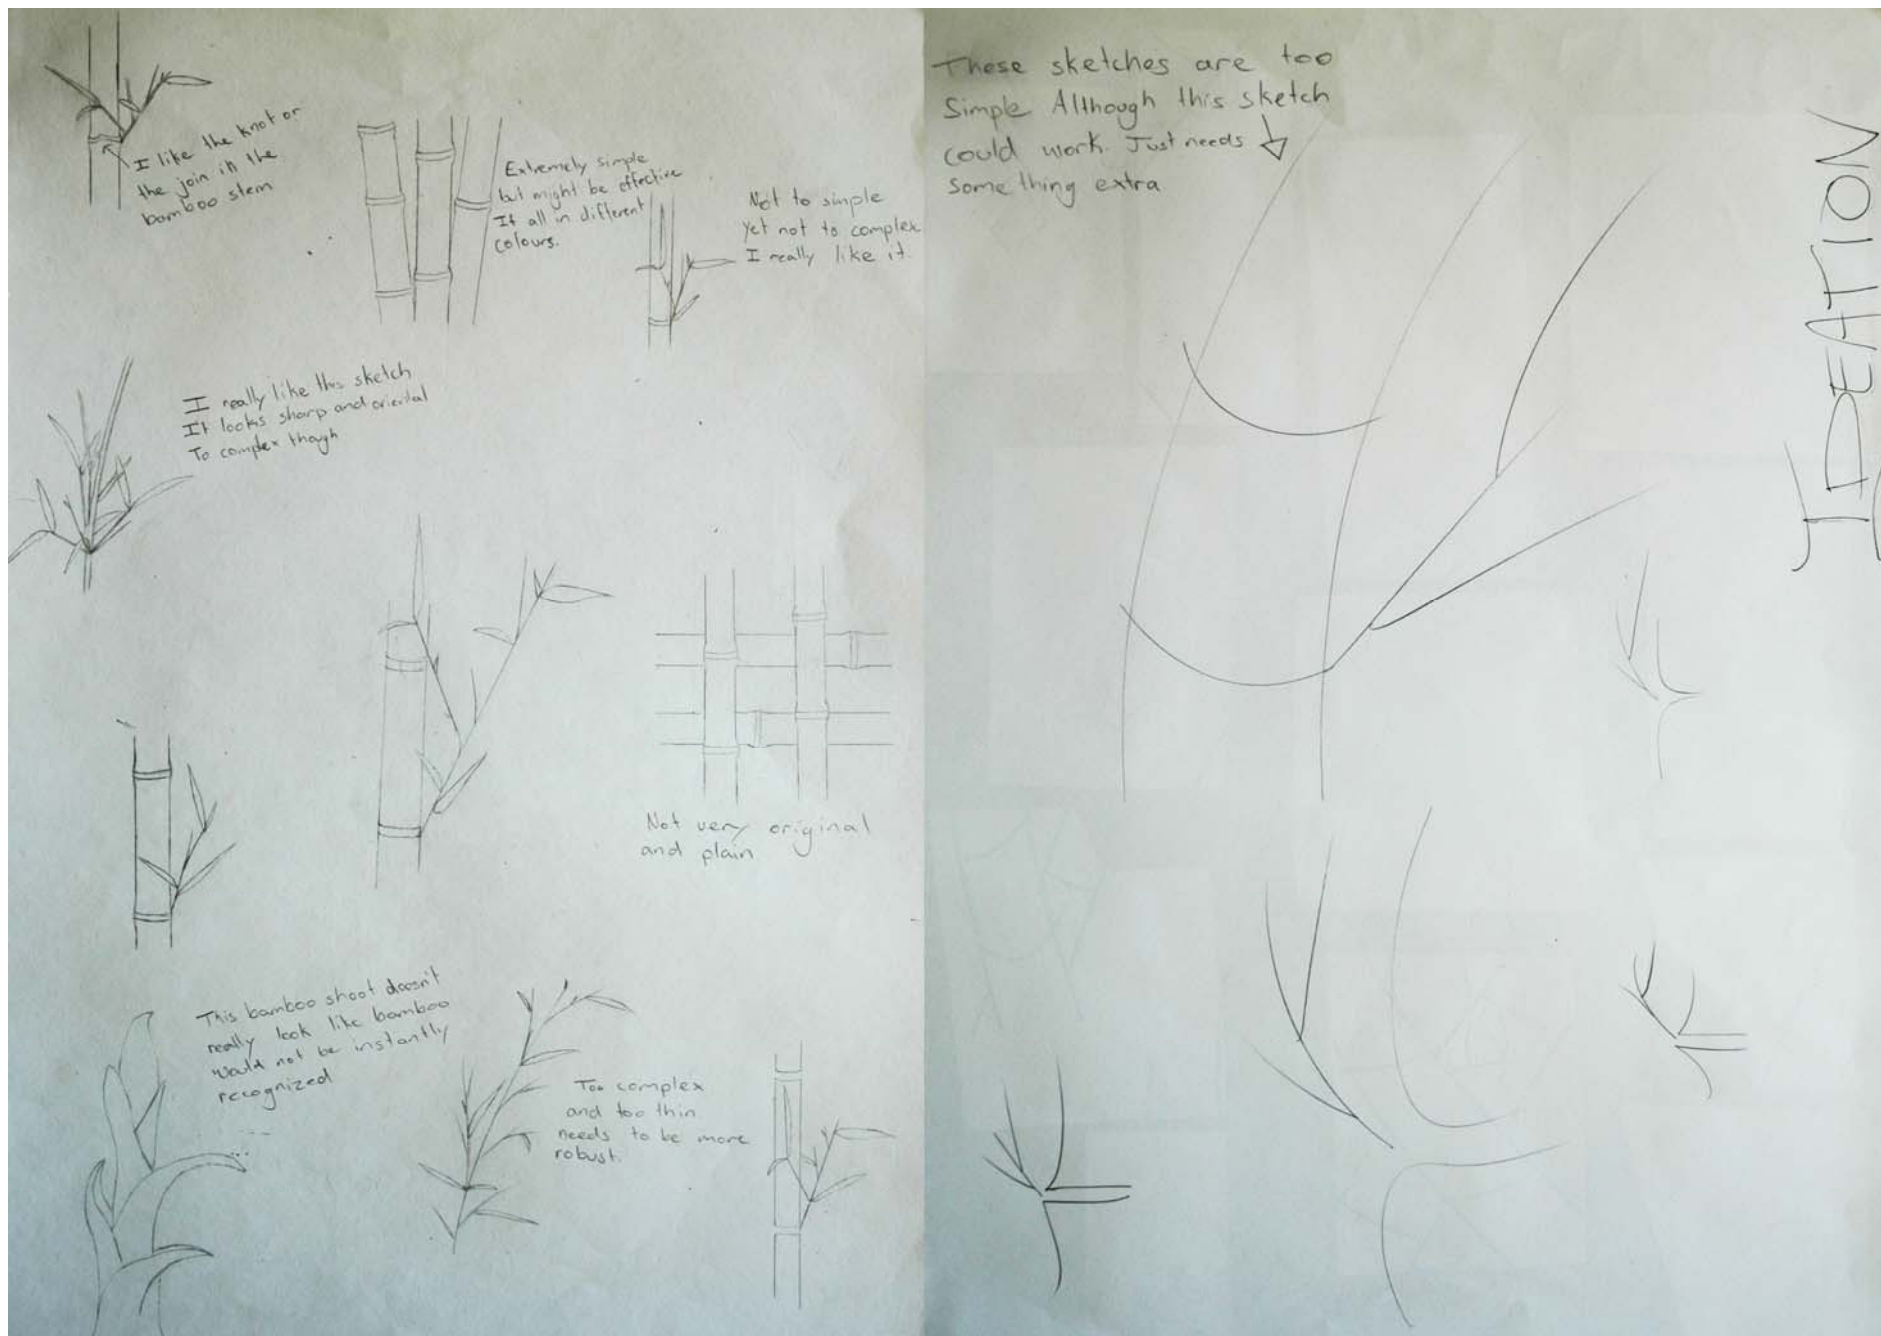 I like the knot or
the join in the
bamboo stem
Extremely simple
but might be effective
If all in different
colours.
Not to simple
yet not to complex
I really like it.
I really like this sketch
It looks sharp and oriental
To complex though
Not very original
and plain
This bamboo shoot doesn't
really look like bamboo
would not be instantly
recognized
Too complex
and too thin
needs to be more
robust.
These sketches are too
Simple Although this sketch
could work. Just needs
something extra
IDEATION